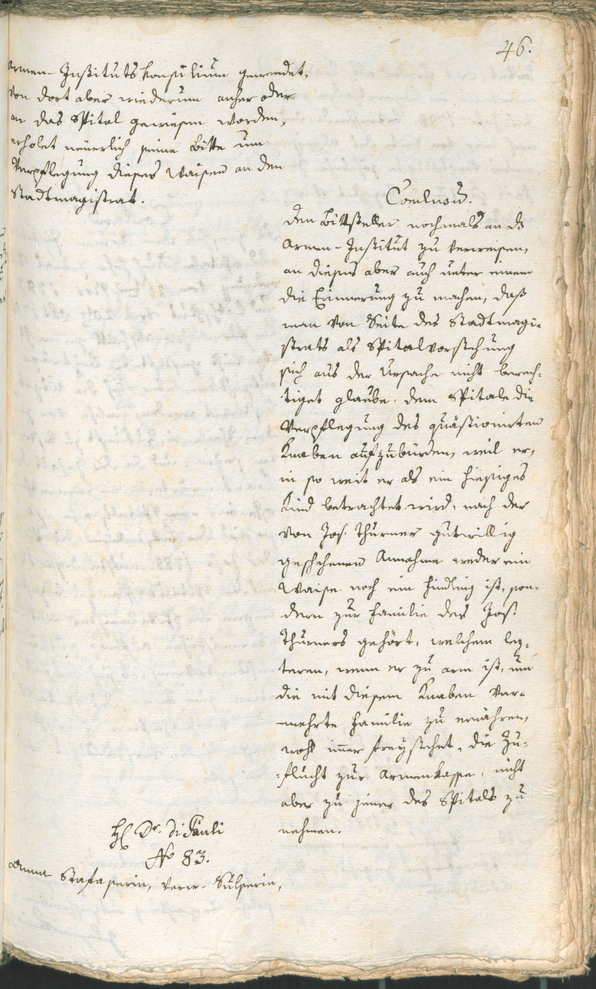 46.
Armen-Instituts konsilium gewendet,
von dort aber wiederum anher oder
an das Spital gewiesen worden,
erholet neuerlich seine Bitte um
Verpflegung dieses Waisen an den
Stadtmagistrat.
Conclusum.
den Bittsteller nochmals an das
Armen-Institut zu verweisen,
an dieses aber auch unter einem
die Erinnerung zu machen, daß
man von Seite des Stadtmagi-
strats als Spitalvorstehung
sich aus der Ursache nicht berech-
tiget glaube, dem Spitale die
Verpflegung des quästionirten
Knaben aufzubürden, weil er,
in so weit er als ein hiesiges
Kind betrachtet wird, nach der
von Jos. Thurner gutwillig
geschehenen Annahme weder ein
Waise noch ein Findling ist, son-
dern zur Familie des Jos.
Thurners gehört, welchem lez-
teren, wenn er zu arm ist, um
die mit diesem Knaben ver-
mehrte Familie zu ernähren,
wohl immer freystehet, die Zu-
flucht zur Armenkasse, nicht
aber zu jener des Spitals zu
nehmen.
H. Dr. Di Pauli
No 83.
Anna